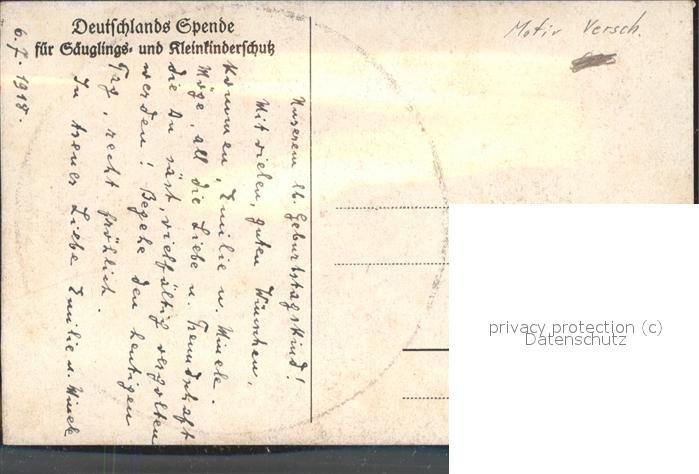 Deutschlands Spende
für Säuglings- und Kleinkinderschutz
Motiv Versch.
6.7.1918.
Unserem lb. Geburtstagskind!
Mit vielen, guten Wünschen,
kommen, Emilie u. Minele.
Möge, all die Liebe u. Freundschaft
die Du säst, vielfältig vergolten
werden! Begehe den heutigen
Tag, recht fröhlich.
In treuer Liebe Emilie u. Minele
privacy protection (c)
Datenschutz